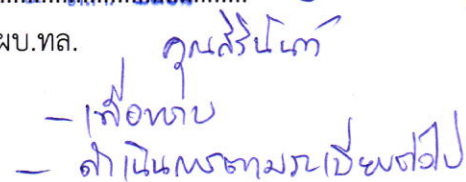 ผบ.ทล.
คุณสิรินันท์
- เพื่อทราบ
- ดำเนินการตามระเบียบต่อไป